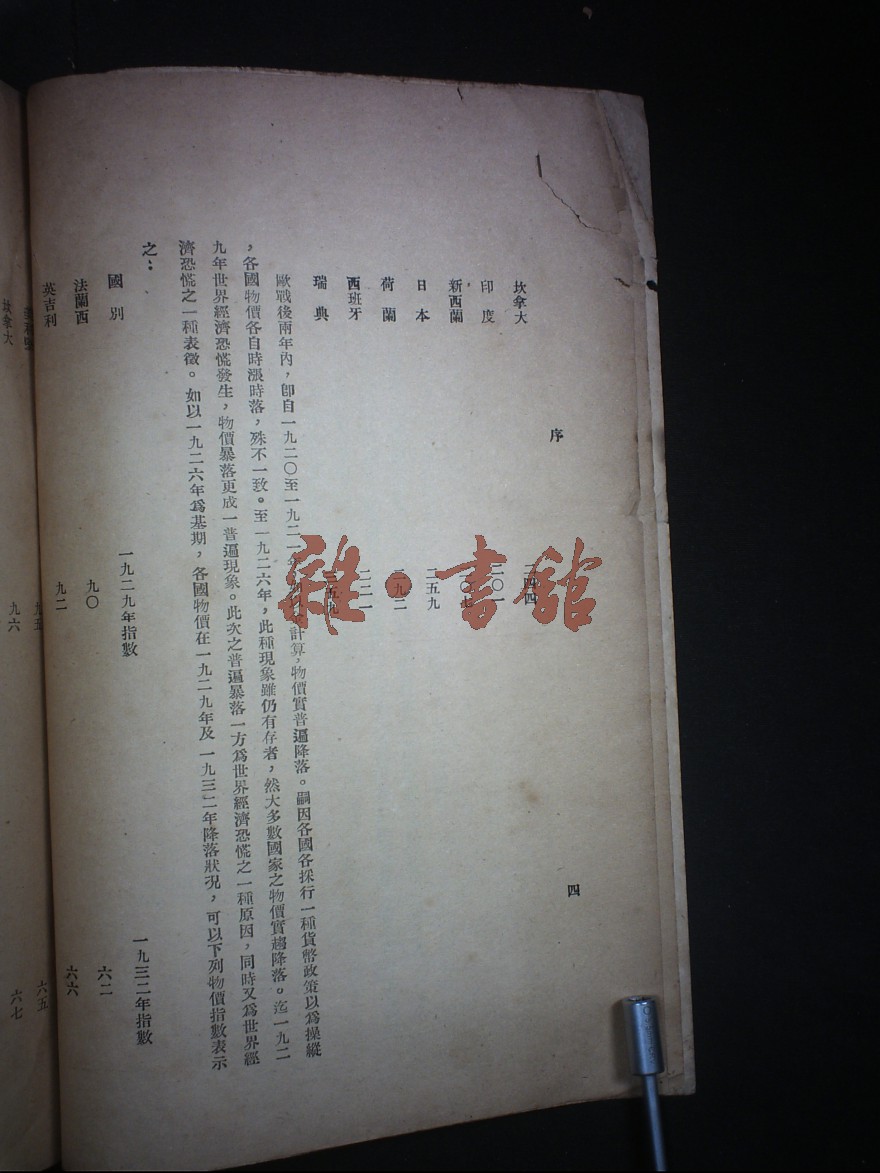 序
四
坎拿大 二四四
印度 二〇一
新西蘭 二〇七
日本 二五九
荷蘭 二九二
西班牙 二二一
瑞典 三五九
歐戰後兩年內，卽自一九二〇至一九二一年 計算，物價實普遍降落。嗣因各國各採行一種貨幣政策以爲操縱
，各國物價各自時漲時落，殊不一致。至一九二六年，此種現象雖仍有存者，然大多數國家之物價實趨降落。迄一九二
九年世界經濟恐慌發生，物價暴落更成一普遍現象。此次之普遍暴落一方爲世界經濟恐慌之一種原因，同時又爲世界經
濟恐慌之一種表徵。如以一九二六年爲基期，各國物價在一九二九年及一九三二年降落狀況，可以下列物價指數表示
之：
國別 一九二九年指數 一九三二年指數
法蘭西 九〇 六二
英吉利 九二 六六
九五 六五
坎拿大 九六 六七
雜·書舘